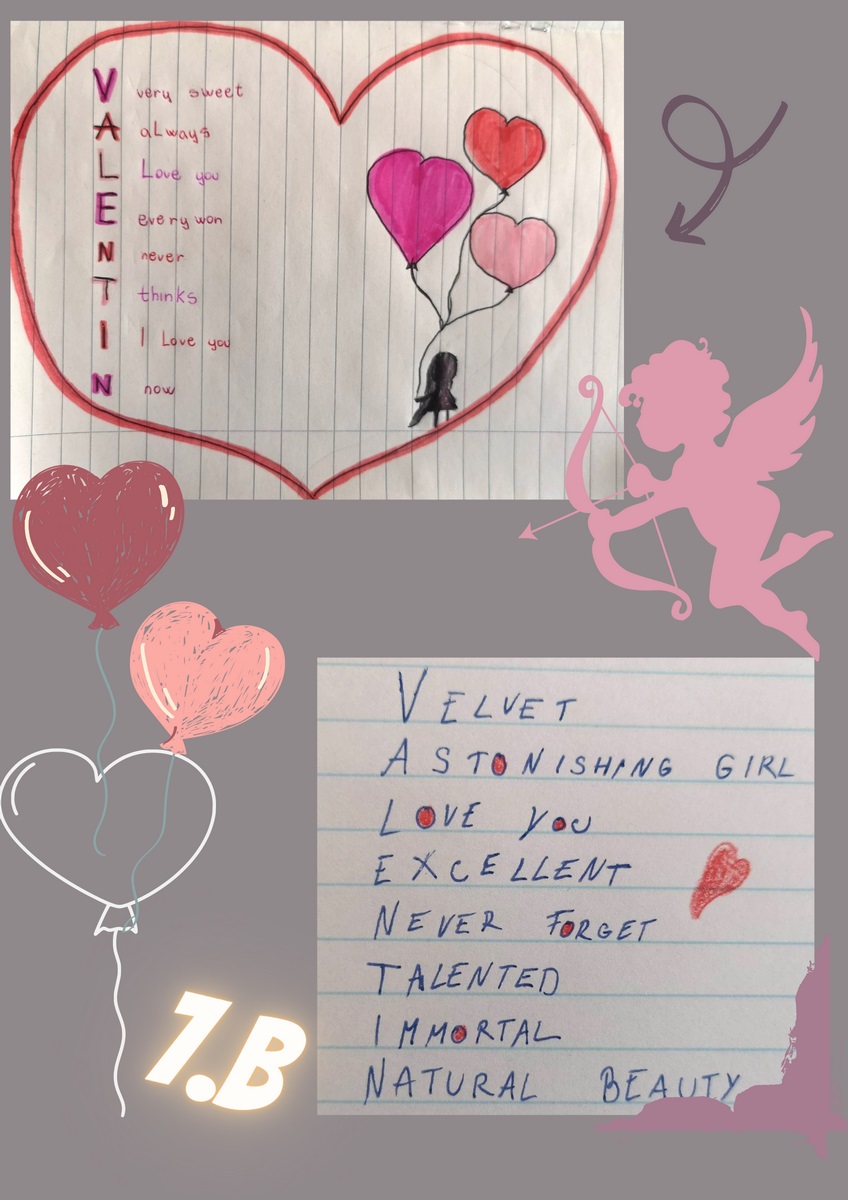 V very sweet
A aLways
L Love you
E every won
N never
T thinks
I I Love you
N now
VELVET
ASTONISHING GIRL
LOVE YOU
EXCELLENT
NEVER FORGET
TALENTED
IMMORTAL
NATURAL BEAUTY
7.B